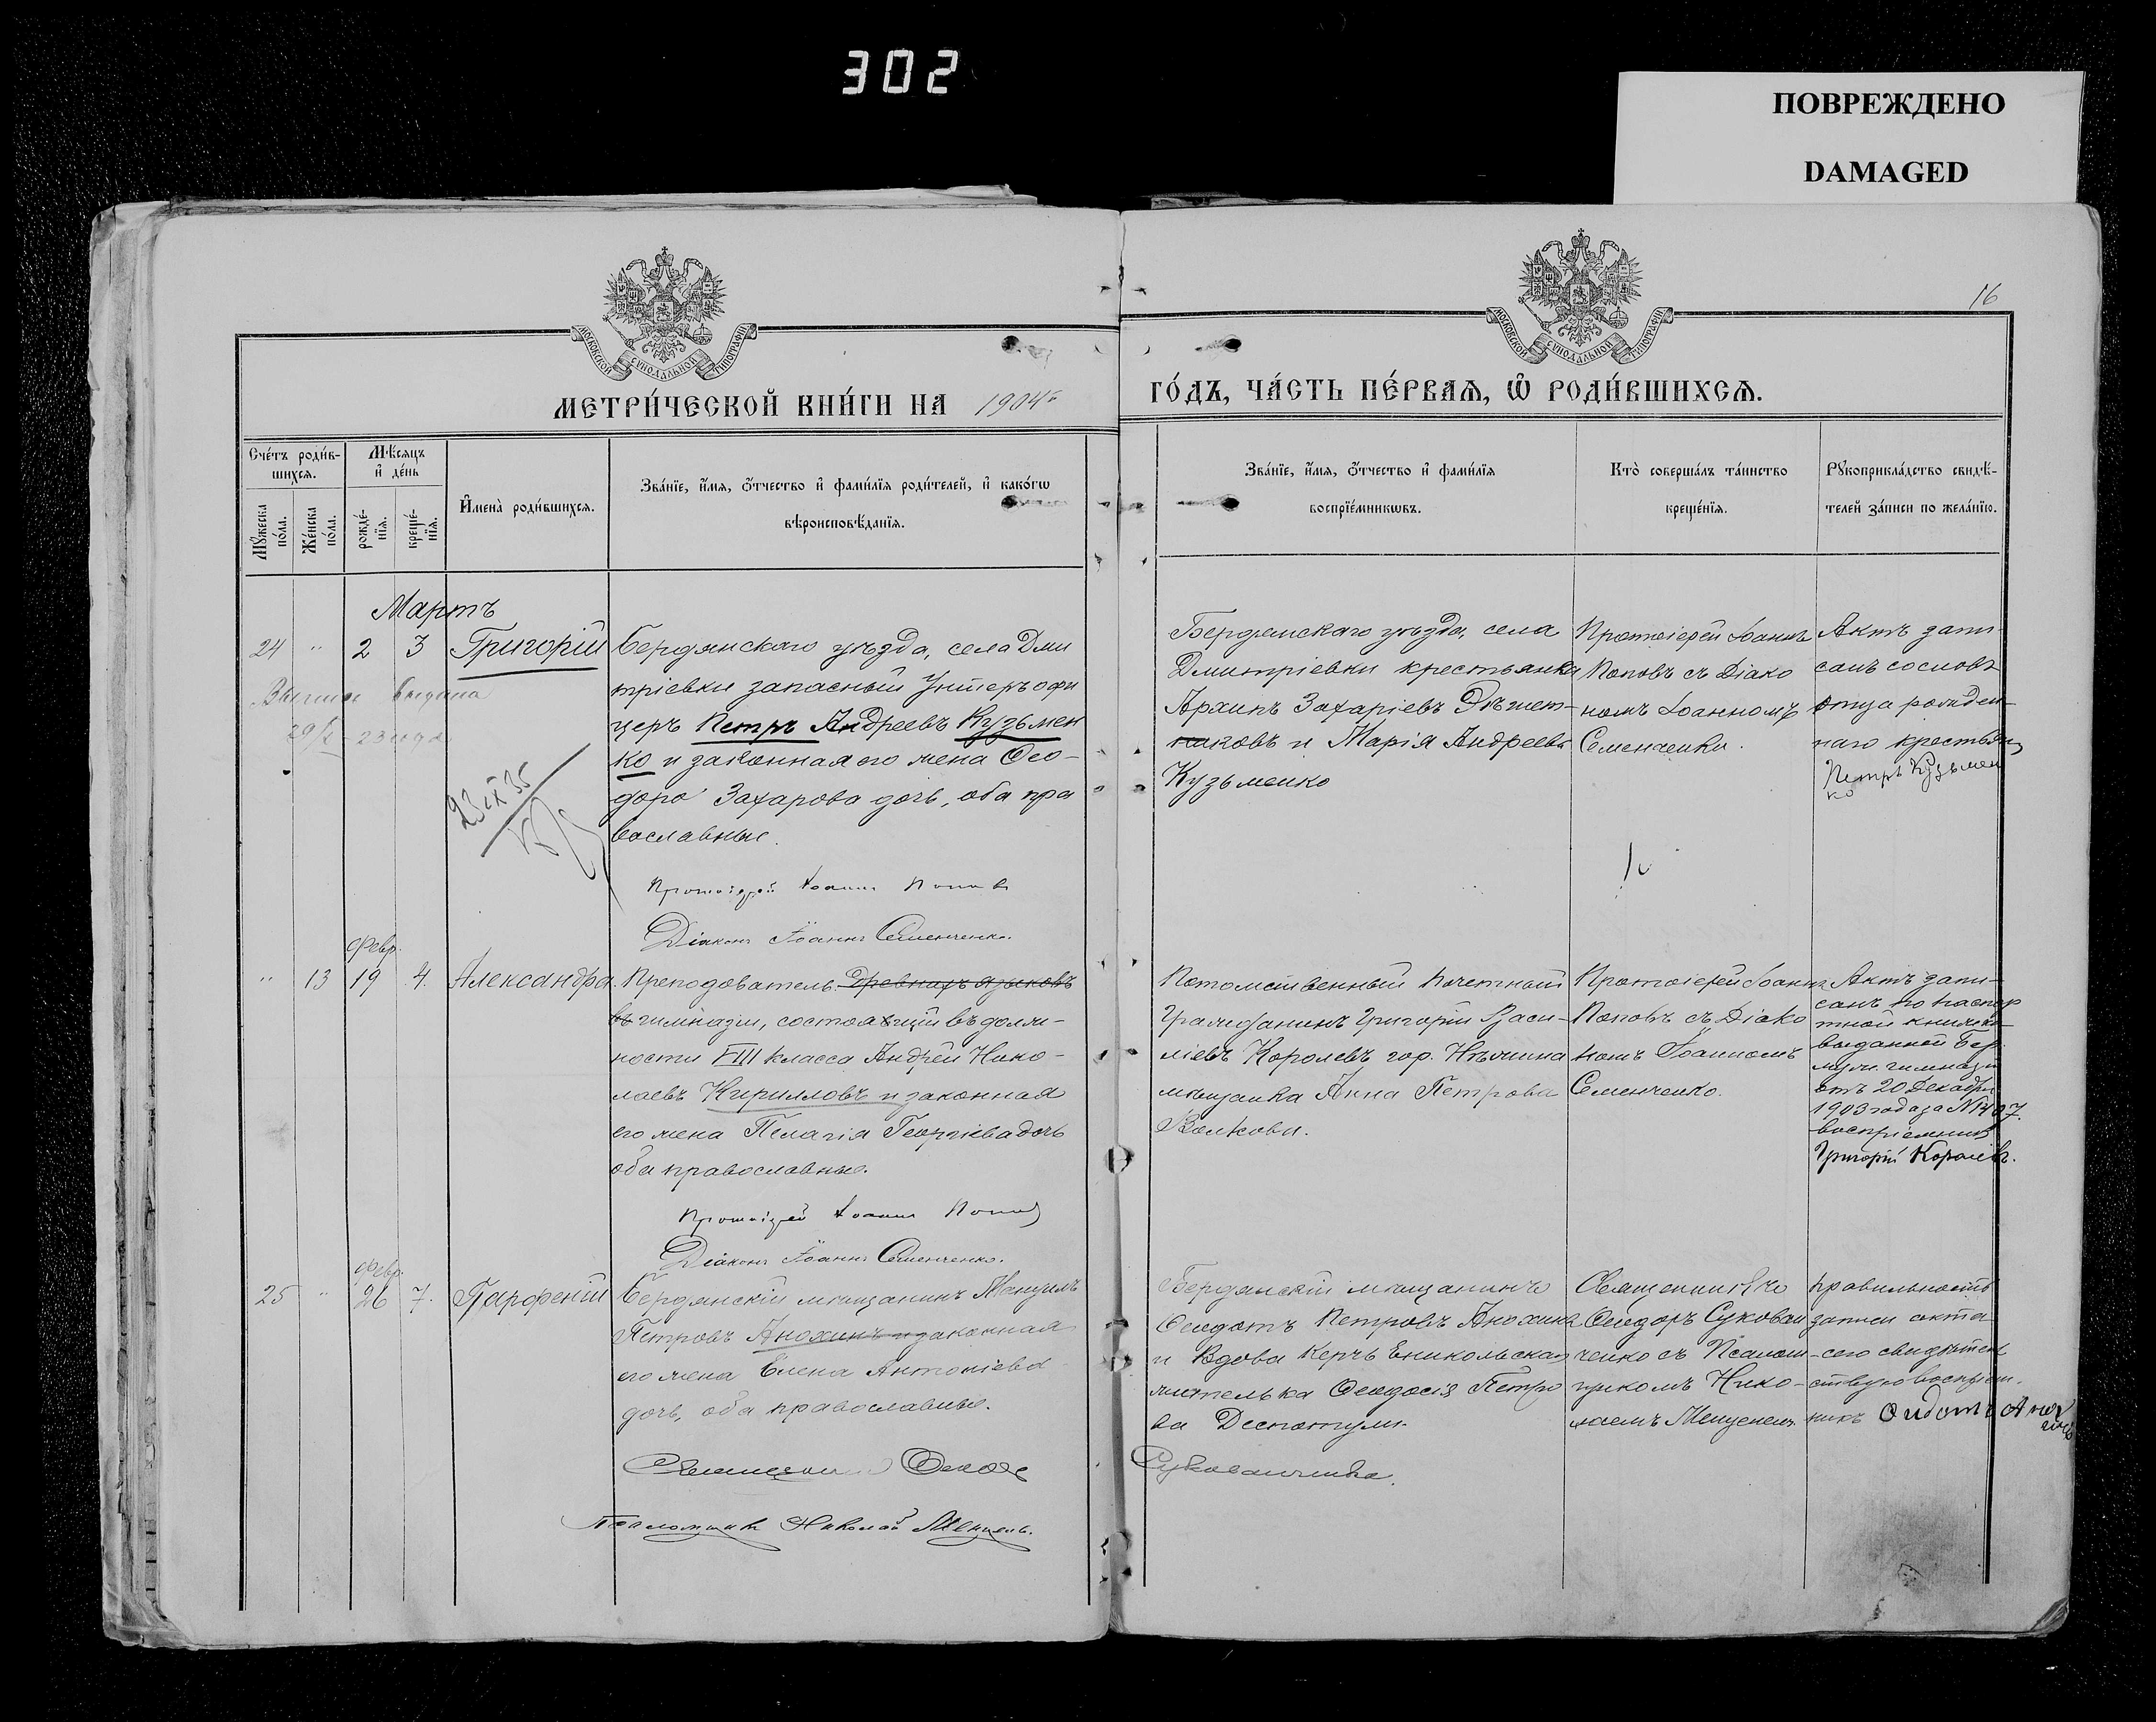 302
ПОВРЕЖДЕНО
DAMAGED
16
МОСКОВСКОЙ СУНОДАЛЬНОЙ ТИПОГРАФІИ
МОСКОВСКОЙ СУНОДАЛЬНОЙ ТИПОГРАФІИ
МЕТРИ́ЧЕСКОЙ КНИ́ГИ НА 1904 г
ГО́ДЪ, ЧА́СТЬ ПЕ́РВАѦ, Ѿ РОДИ́ВШИХСѦ.
Сче́тъ роди́в-
шихсѧ.
Мꙋ́жеска
по́ла.
Же́нска
по́ла.
Мѣ́сѧцъ
и҆ де́нь
рожде́-
нїѧ.
креще́-
нїѧ.
И҆мена̀ роди́вшихсѧ.
Зва́нїе, и҆́мѧ, ѻ҆́тчество и҆ фамі́лїѧ роди́телей, и҆ како́гѡ
вѣроисповѣ́данїѧ.
Зва́нїе, и҆́мѧ, ѻ҆́тчество и҆ фамі́лїѧ
воспрїе́мникѡвъ.
Кто̀ соверша́лъ та́инство
креще́нїѧ.
Рꙋкоприкла́дство свидѣ́-
телей за́писи по жела́нїю.
Мартъ
24 " 2 3 Григорій
выдана
23 IX 35
Бердянскаго уѣзда, села Дми
тріевки запасный Унтеръ офи
церъ Петръ Андреевъ Кузьмен
ко и законная его жена Ѳео-
дора Захарова дочь, оба пра
вославные.
Протоіерей Іоаннъ Поповъ
Діаконъ Іоаннъ Семенченко.
Бердянскаго уѣзда, села
Дмитріевки крестьянка
Архипъ Захаріевъ
никовъ и Марія Андреева
Кузьменко
Протоіерей Іоаннъ
Поповъ съ Діако
номъ Іоанномъ
Семенченко.
Актъ запи
санъ со словъ
отца рожден-
наго крестьян
Петръ Кузьмен
ко
Февр.
" 13 19 4. Александра
Преподаватель древнихъ языковъ
въ гимназіи, состоящій въ долж-
ности VIII класса Андрей Нико-
лаевъ Кирилловъ и законная
его жена Пелагія Георгіева дочь
оба православные.
Протоіерей Іоаннъ Поповъ
Діаконъ Іоаннъ Семенченко.
Потомственный почетный
гражданинъ Григорій Васи-
ліевъ Королевъ гор. Нѣжина
мѣщанка Анна Петрова
Волкова.
Протоіерей Іоаннъ
Поповъ съ Діако
номъ Іоанномъ
Семенченко.
Актъ запи-
санъ по паспор
тной книжкѣ
выданной Бер.
муж. гимназіи
отъ 20 Декабря
1903 года за №1407.
воспріемникъ
Григорій Королевъ.
Февр.
25 " 26 7. Парфеній
Бердянскій мѣщанинъ Мануилъ
Петровъ Анохинъ и законная
его жена Елена Антоніева
дочь, оба православные.
Священникъ Ѳеодоръ
Суковатченко.
Псаломщикъ Николай Менцель.
Бердянскій мѣщанинъ
Ѳеодотъ Петровъ Анохинъ
и вдова Керчь Еникольская
жителька Ѳеодосія Петро
ва Деспотули.
Священникъ
Ѳеодоръ Суковат
ченко съ Псалом-
щикомъ Нико-
лаемъ Менцелемъ
правильность
записи акта
сего свидѣтель
ствую воспріем-
никъ Ѳидотъ Анох
инъ